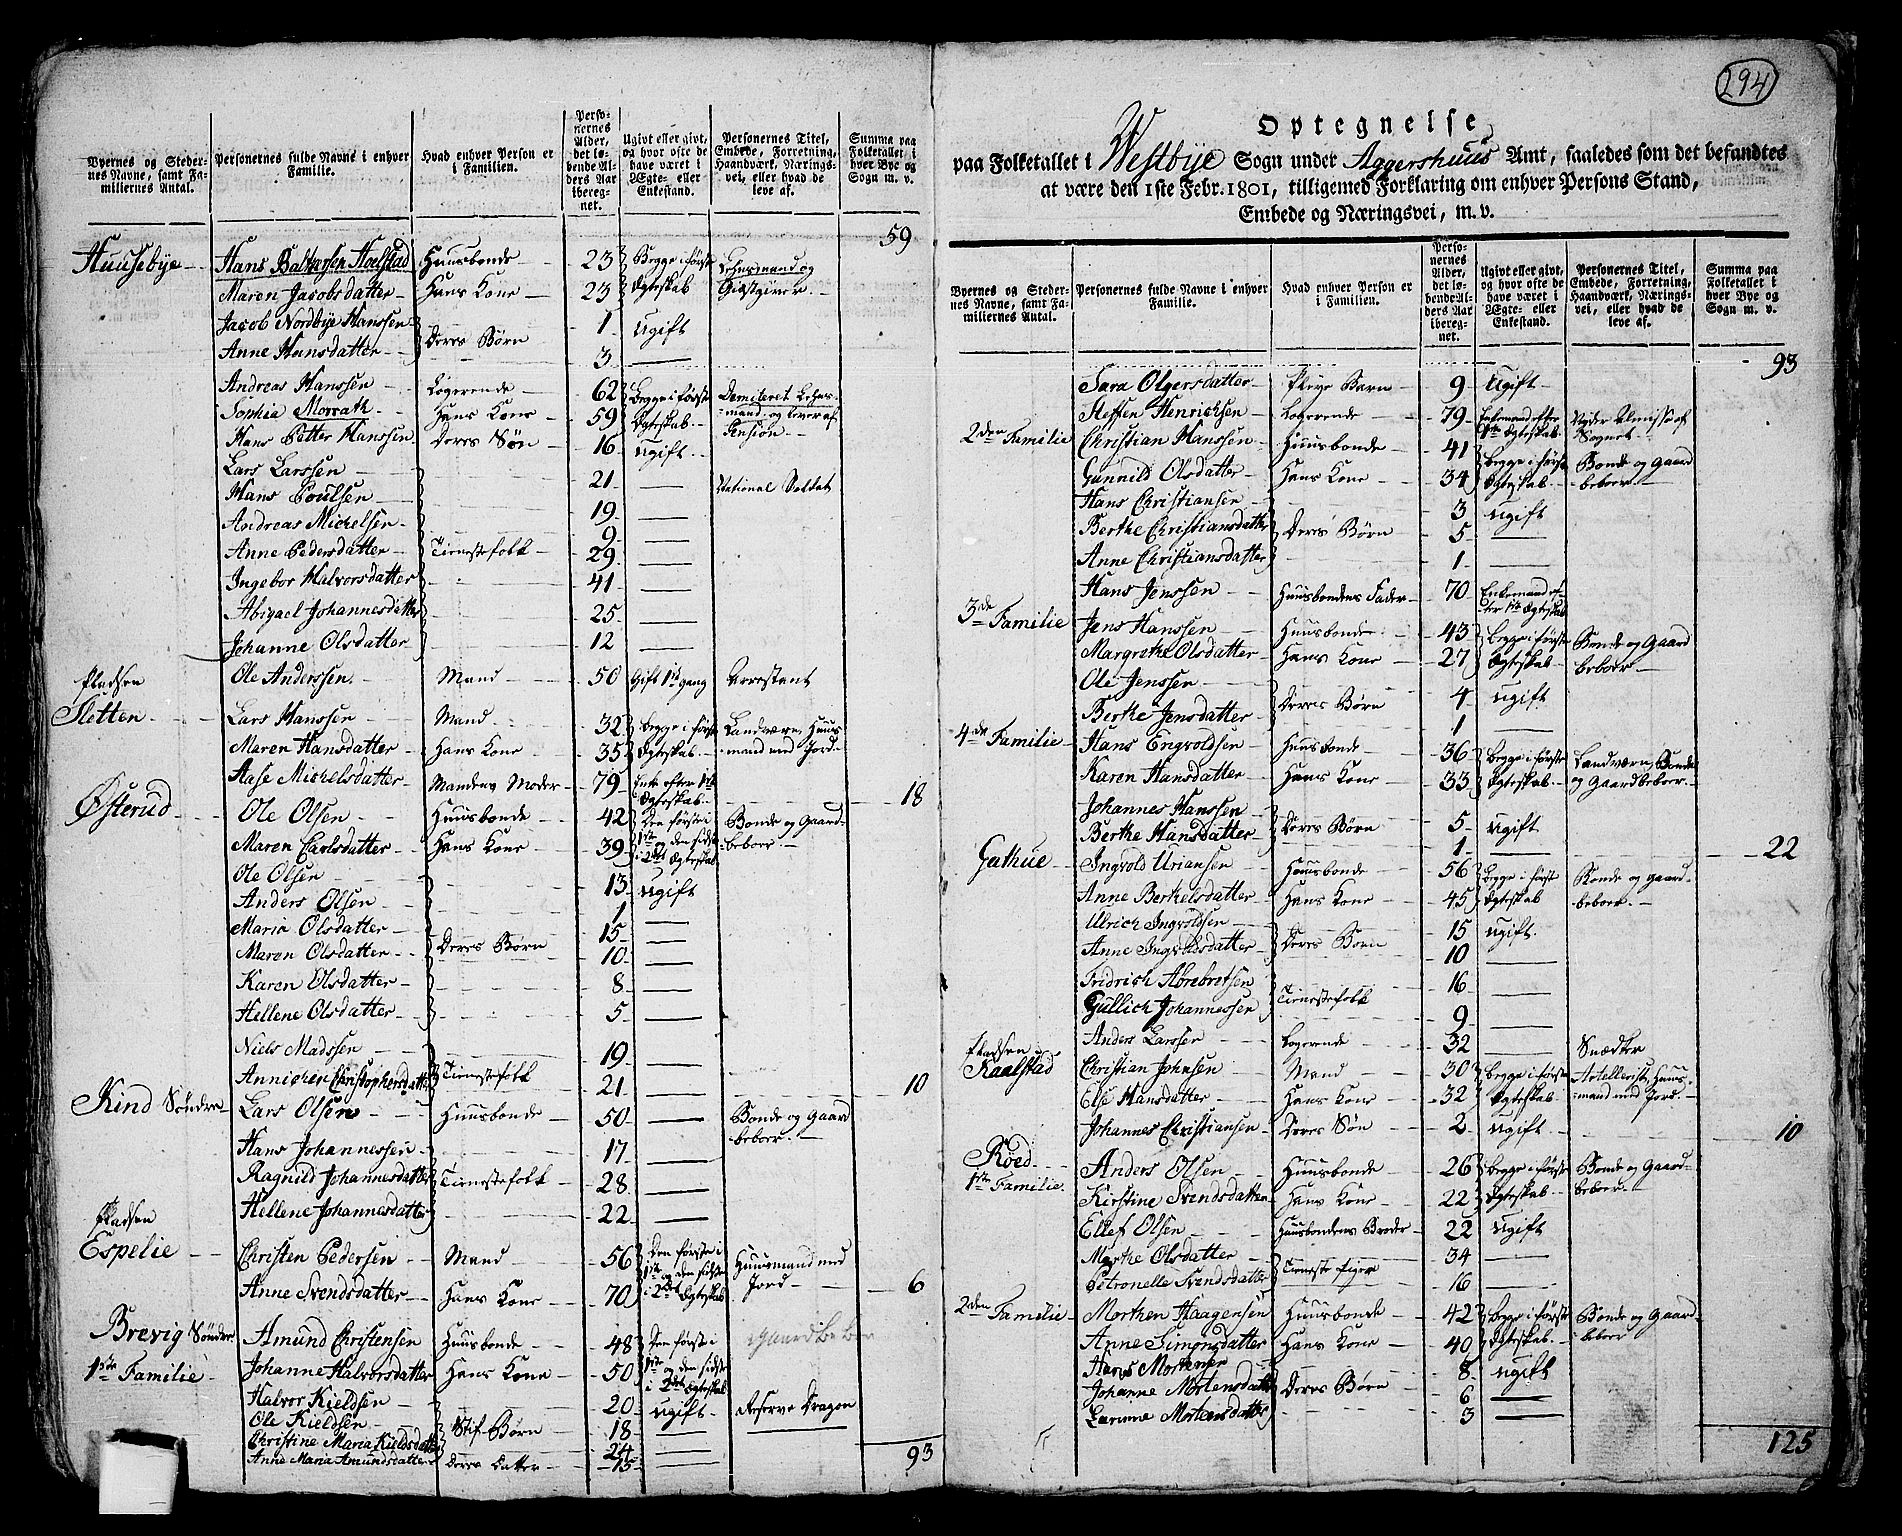 294
Byernes og Steder-
nes Navne, samt Fa-
miliernes Antal.
Personernes fulde Navne i enhver
Familie.
Hvad enhver Person er
i Familien.
Perso-
nernes
Alder,
det lø-
bende Al-
ders Aar
ibereg-
net.
Ugivt eller givt,
og hvor ofte de
have været i
Ægte- eller
Enkestand.
Personernes Titel,
Embede, Forretning,
Haandværk, Nærings-
vei, eller hvad de
leve af.
Summa paa
Folketallet i
hver Bye og
Sogn m. v.
59
Huusebye Hans Baltzersen Hoelstad Huusbonde 23 Begge i første Lehnsmand og
Maren Jacobsdatter Hans Kone 23 Ægteskab Giestgiver
Jacob Nordbye Hanssen Deres Børn 1 ugift
Anne Hansdatter 3
Andreas Hanssen Logerende 62 Begge i første Demiteret Lehns-
Sophia Morrath Hans Kone 59 Ægteskab mand og lever af
Hans Petter Hanssen Deres Søn 16 ugift Pension
Lars Larssen 21 National Soldat
Hans Poulsen 19
Andreas Michelsen 9
Anne Pedersdatter Tienestefolk 29
Ingebor Halvorsdatter 41
Abigael Johannesdatter 25
Johanne Olsdatter 12
Ole Anderssen Mand 50 Gift 1ste gang Arrestant
Pladsen
Sletten Lars Hanssen Mand 32 Begge i første Landværn Huus
Maren Hansdatter Hans Kone 35 Ægteskab mand med Jord
Aase Michelsdatter Mandens Moder 79 Enke efter 1ste Ægteskab 18
Østerud Ole Olsen Huusbonde 42 Den første i Bonde og Gaard-
Maren Carlsdatter Hans Kone 39 1ste og den sidste i 2det Ægteskab beboer
Ole Olsen 13 ugift
Anders Olsen 1
Maria Olsdatter 15
Maren Olsdatter Deres Børn 10
Karen Olsdatter 8
Hellene Olsdatter 5
Niels Madssen 19
Annichen Christophersdatter Tienestefolk 21 10
Kind Søndre Lars Olsen Huusbonde 50 Bonde og Gaard
beboer
Hans Johannessen 17
Ragnild Johannesdatter Tienestefolk 28
Hellene Johannesdatter 22
Pladsen
Espelie Christen Pedersen Mand 56 Den første i Huusmand med
Anne Svendsdatter Hans Kone 70 1ste og den sidste i 2det Ægteskab Jord 6
Brevig Søndre Amund Christensen Huusbonde 48 Den første i Gaardbeboer
1ste Familie Johanne Halvorsdatter Hans Kone 50 1ste og den sidste i 2det Ægteskab
Halvor Kieldsen 20 ugift Reserve Dragon
Ole Kieldsen Stif Børn 18
Christine Maria Kieldsdatter 24
Anne Maria Amundsdatter Deres Datter 15
93
Optegnelse
paa Folketallet i Westbye Sogn under Aggershuus Amt, saaledes som det befandtes
at være den 1ste Febr. 1801, tilligemed Forklaring om enhver Persons Stand,
Embede og Næringsvei, m. v.
Byernes og Steder-
nes Navne, samt Fa-
miliernes Antal.
Personernes fulde Navne i enhver
Familie.
Hvad enhver Person er
i Familien.
Perso-
nernes
Alder,
det lø-
bende Al-
ders Aar
ibereg-
net.
Ugivt eller givt,
og hvor ofte de
have været i
Ægte- eller
Enkestand.
Personernes Titel,
Embede, Forretning,
Haandværk, Nærings-
vei, eller hvad de
leve af.
Summa paa
Folketallet i
hver Bye og
Sogn m. v.
93
Sara Olgersdatter Pleye Barn 9 Ugift
Steffen Henrichsen Logerende 79 Enkemand efter 1ste Ægteskab Nyder Almisse af Sognet
2den Familie Christian Hanssen Huusbonde 41 Begge i første Bonde og Gaard
Gunnild Olsdatter Hans Kone 34 Ægteskab beboer
Hans Christiansen 3 ugift
Berthe Christiansdatter Deres Børn 5
Anne Christiansdatter 1
Hans Jenssen Huusbondens Fader 70 Enkemand ef-
ter 1ste Ægteskab
3de Familie Jens Hanssen Huusbonde 43 Begge i første Bonde og Gaard
Margrethe Olsdatter Hans Kone 27 Ægteskab beboer
Ole Jenssen Deres Børn 4 ugift
Berthe Jensdatter 1
4de Familie Hans Engvoldsen Huusbonde 36 Begge i første Landværn Bonde
Karen Hansdatter Hans Kone 33 Ægteskab og Gaardbeboer
Johannes Hanssen Deres Børn 5 ugift
Berthe Hansdatter 1 22
Guthue Ingvold Uriansen Huusbonde 56 Begge i først Bonde og Gaard-
Anne Berthelsdatter Hans Kone 45 Ægteskab beboer
Ulrich Ingvoldsen 15 ugift
Anne Ingvoldsdatter Deres Børn 10
Fridrich Abrebretsen 16
Gullich Johannessen Tienestefolk 9
Anders Larssen Logerende 32 Snædker
Pladsen
Kaalstad Christian Johnsen Mand 30 Begge i første Artellerist, Huus-
Else Hansdatter Hans Kone 32 Ægteskab mand med Jord
Johannes Christiansen Deres Søn 2 ugift 10
Røed Anders Olsen Huusbonde 26 Begge i første Bonde og Gaard-
1ste Familie Kirstine Svendsdatter Hans Kone 22 Ægteskab beboer
Ellef Olsen Huusbondens Broder 22 ugift
Marthe Olsdatter 34
Petronelle Svendsdatter Tieneste piger 16
2den Familie Morthen Haagensen Huusbonde 42 Begge i første Bonde og Gaard-
Anne Simonsdatter Hans Kone 40 Ægteskab beboer
Hans Mortensen 8 ugift
Johanne Mortensdatter Deres Børn 6
Mortensdatter 3
125